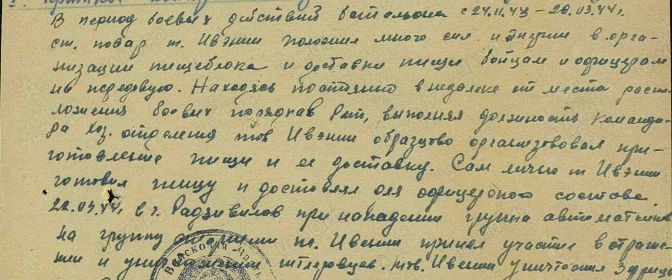 В период боевых действий батальона с 24.11.43 - 20.03.44г.
ст. повар т. Ивэнии положил много сил и энергии в орга-
низации пищеблока и доставки пищи бойцам и офицерам
на передовую. Находясь постоянно в недалеке от места распо-
ложения боевых порядков рот, выполняя должность команди-
ра хоз. отделения тов Ивэнии образцово организовал при-
готовление пищи и ее доставку. Сам лично т. Ивэнии
готовил пищу и доставлял для офицерского состава.
22.03.44г. в г. Радзивилов при нападении группа автоматчиков
на группу т. Ивэнии принял участие в отраже-
нии и уничтожении гитлеровцев. тов. Ивэнии уничтожил